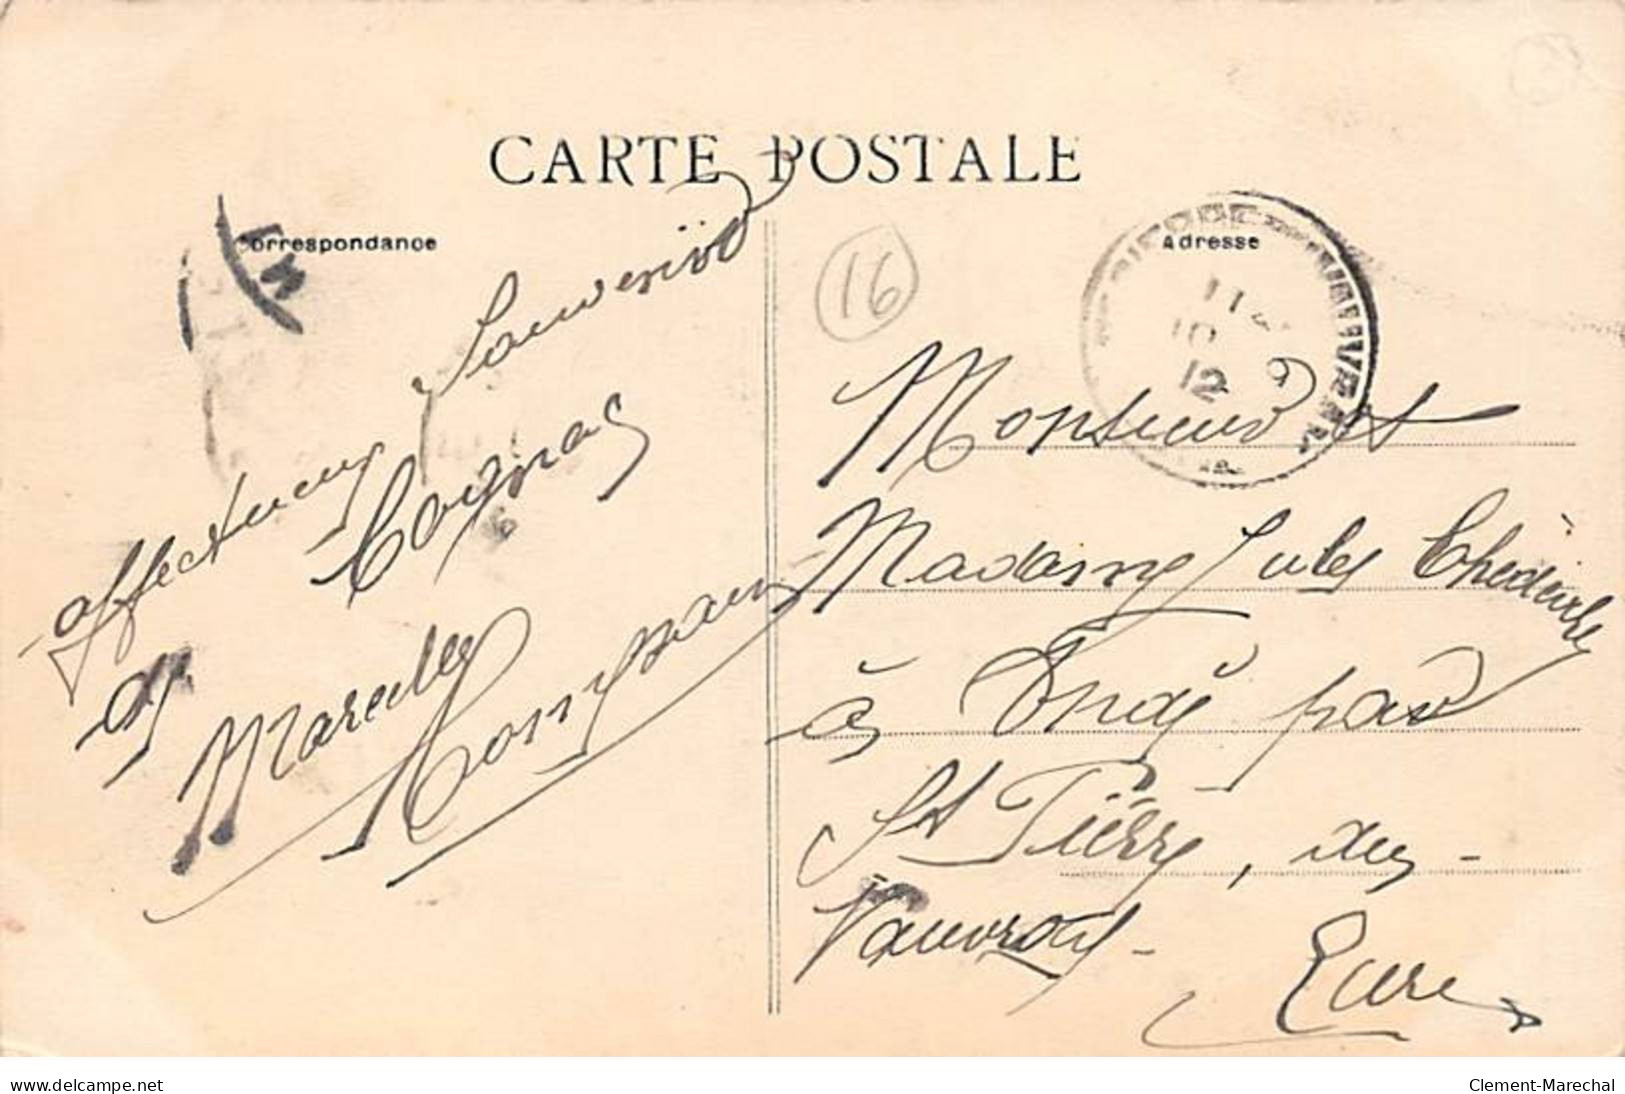 CARTE POSTALE
Correspondance
Adresse
16
affectueux Souvenir
Cognac
Marcelle
Monsieur et
Madame Jules
à par
St Pierre, du
Vauvray
Eure
11
10
12
www.delcampe.net
Clement-Marechal